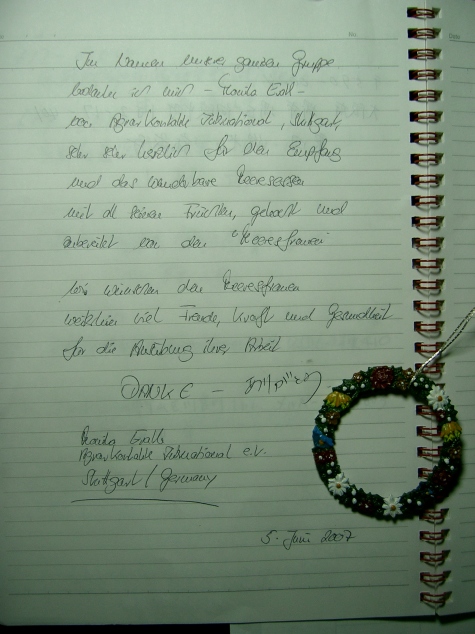 Im Namen unserer ganzen Gruppe
bedanke ich mich – Monika
von Agrarkontakte International, Stuttgart,
sehr sehr herzlich für den Empfang
und das wunderbare Meeresessen
mit all seinen Früchten, gekocht und
zubereitet von den "Meeresfrauen"
Wir wünschen den Meeresfrauen
weiterhin viel Freude, Kraft und Gesundheit
für die Ausübung ihrer Arbeit
DANKE –
Monika
Agrarkontakte International e.V.
Stuttgart / Germany
5. Juni 2007